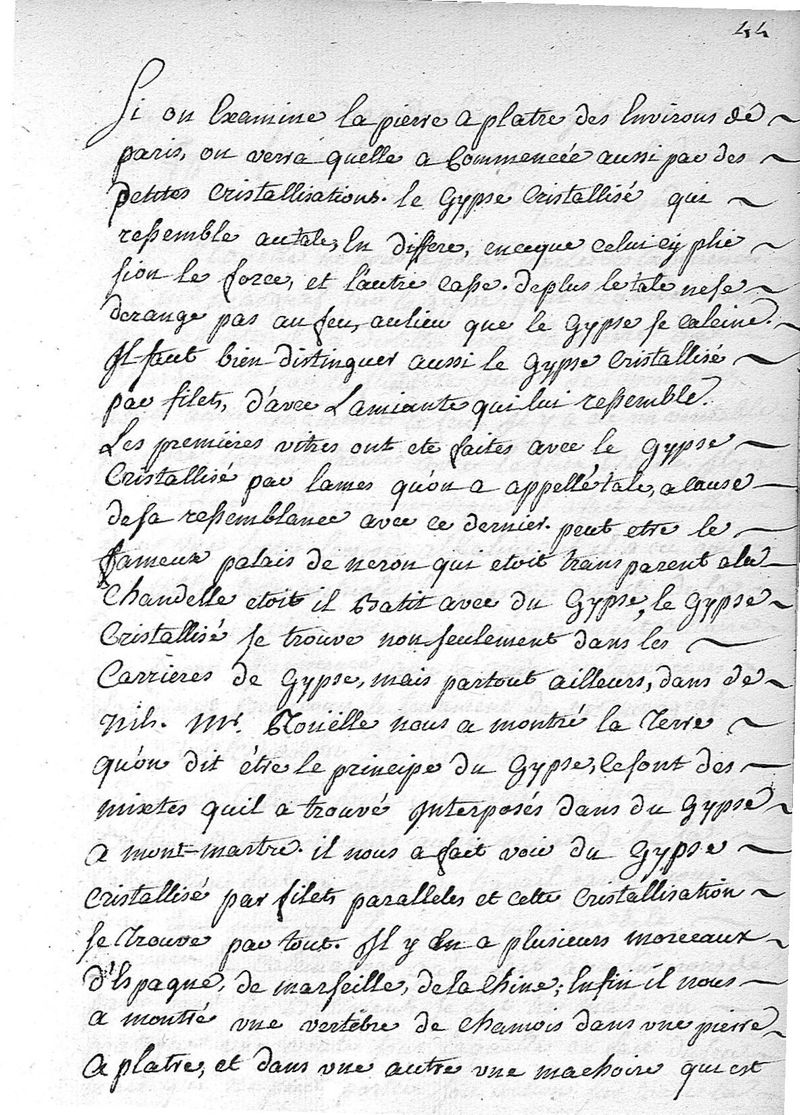 44
Si on Examine la pierre a platre des Environs de
paris, on verra quelle a Commencée aussi par des
petites Cristallisations. le Gypse Cristallisé qui
ressemble au talc, En differe, enceque celui cy plie
sion le force, et l'autre casse. deplus le talc nese
derange pas au feu, aulieu que le Gypse se calcine.
Il faut bien distinguer aussi le Gypse Cristallisé
par filets, d'avec Lamiante qui lui ressemble.
Les premières vitres ont eté faites avec le Gypse
Cristallisé par lames qu'on a appellé talc, a cause
desa ressemblance avec ce dernier. peut etre le
fameux palais de neron qui etoit transparent ala
Chandelle etoit il Batit avec du Gypse, le Gypse
Cristallisé se trouve non seulement dans les
Carrières de Gypse, mais partout ailleurs, dans de
Mr. Rouelle nous a montré la Terre
qu'on dit être le principe du Gypse, ce sont des
mixtes quil a trouvé Interposés dans du Gypse
a mont-martre. il nous a fait voir du Gypse
Cristallisé par filets paralleles et cette Cristallisation
se Trouve par tout. Il y En a plusieurs morceaux
d'Espagne, de marseille, dela Chine; Enfin il nous
a montré une vertèbre de Chamois dans une pierre
a platre, et dans une autre une machoire qui est